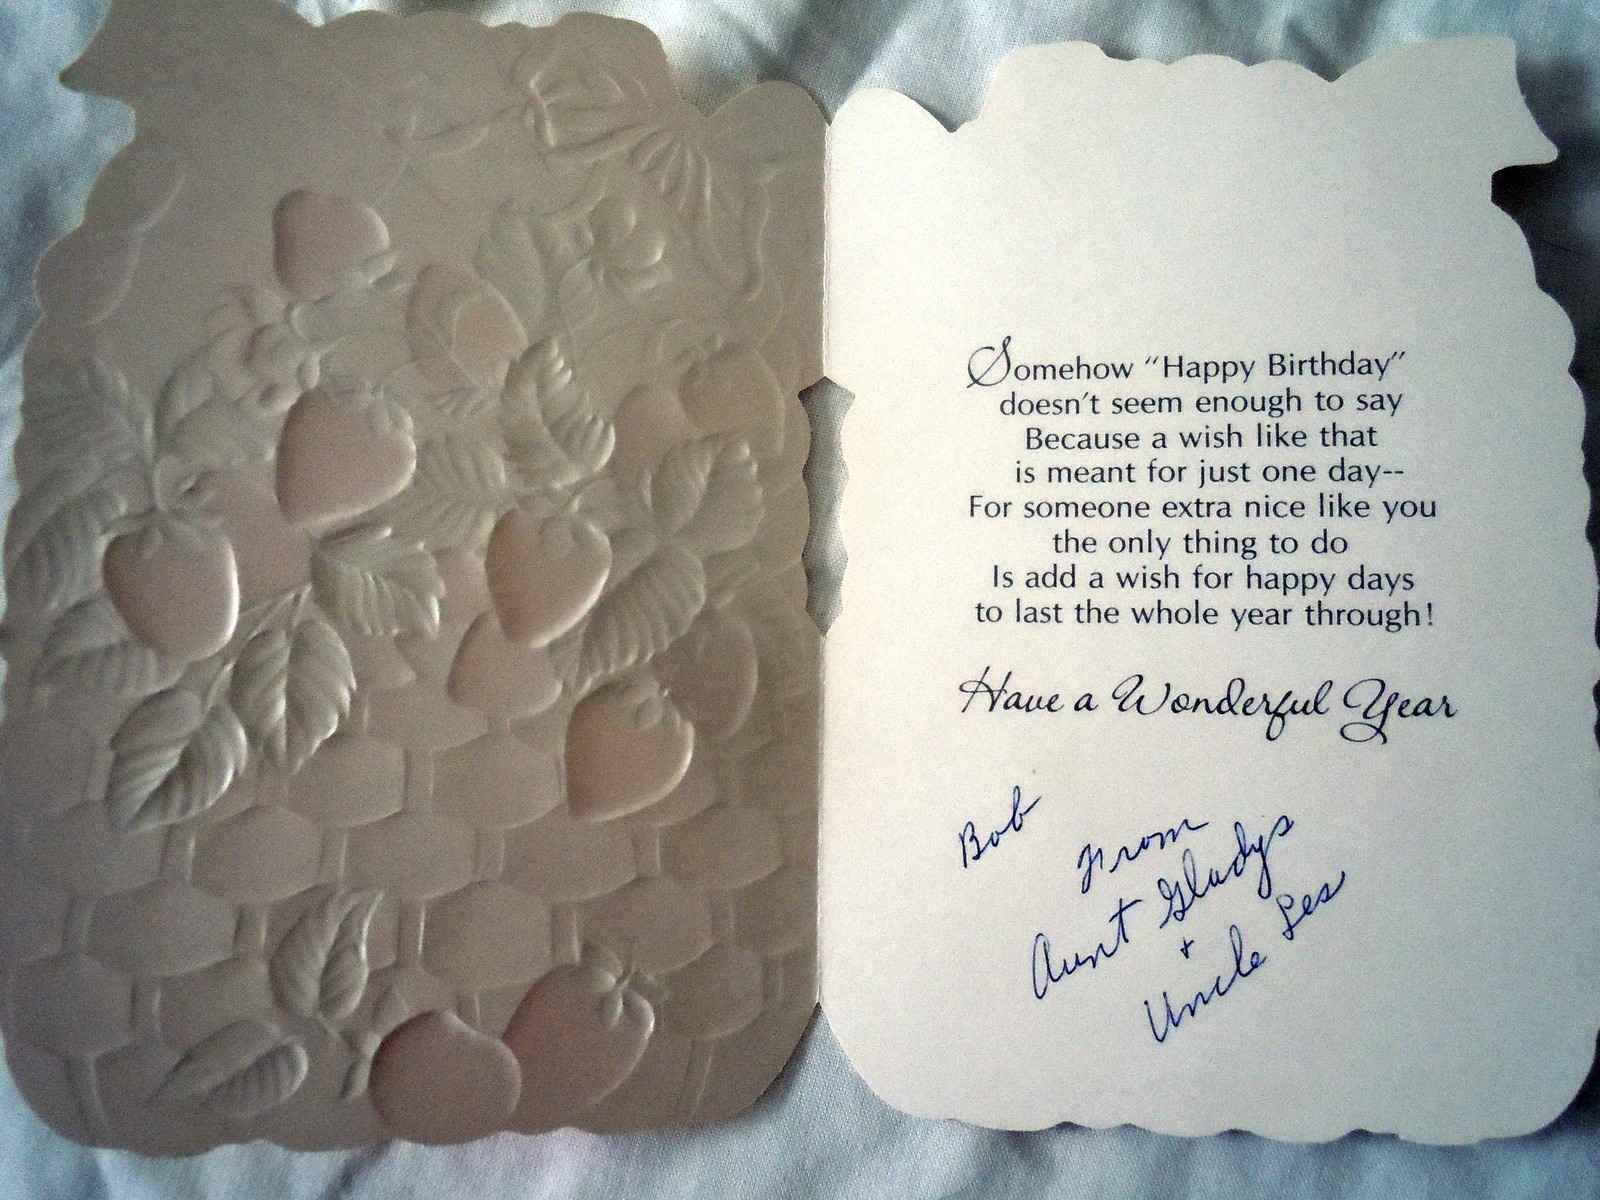 Somehow "Happy Birthday"
doesn't seem enough to say
Because a wish like that
is meant for just one day--
For someone extra nice like you
the only thing to do
Is add a wish for happy days
to last the whole year through!
Have a Wonderful Year
Bob
From
Aunt Gladys
+
Uncle Les